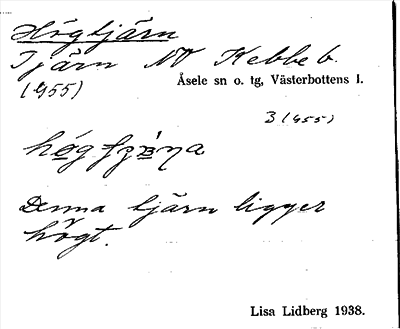 Högtjärn
Tjärn NV Kebbe b.
(955) Åsele sn o. tg, Västerbottens l.
3 (955)
Denna tjärn ligger
högt.
Lisa Lidberg 1938.